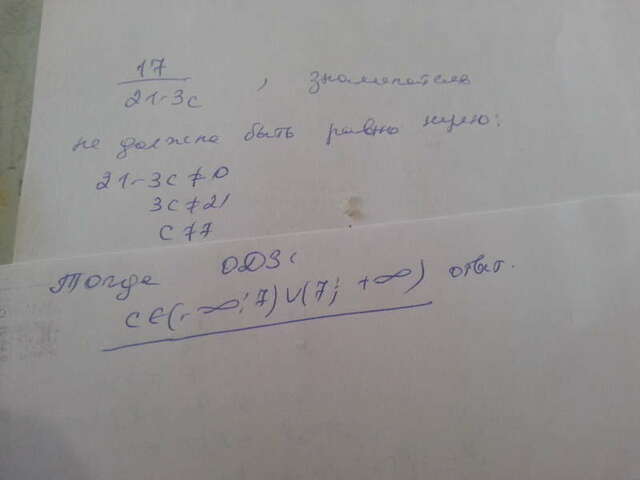 17
21-3c , знаменатель
не должна быть равно нулю:
21-3c≠0
3c≠21
c≠7
Тогда ОДЗ:
c∈(-∞;7)∪(7;+∞) ответ.